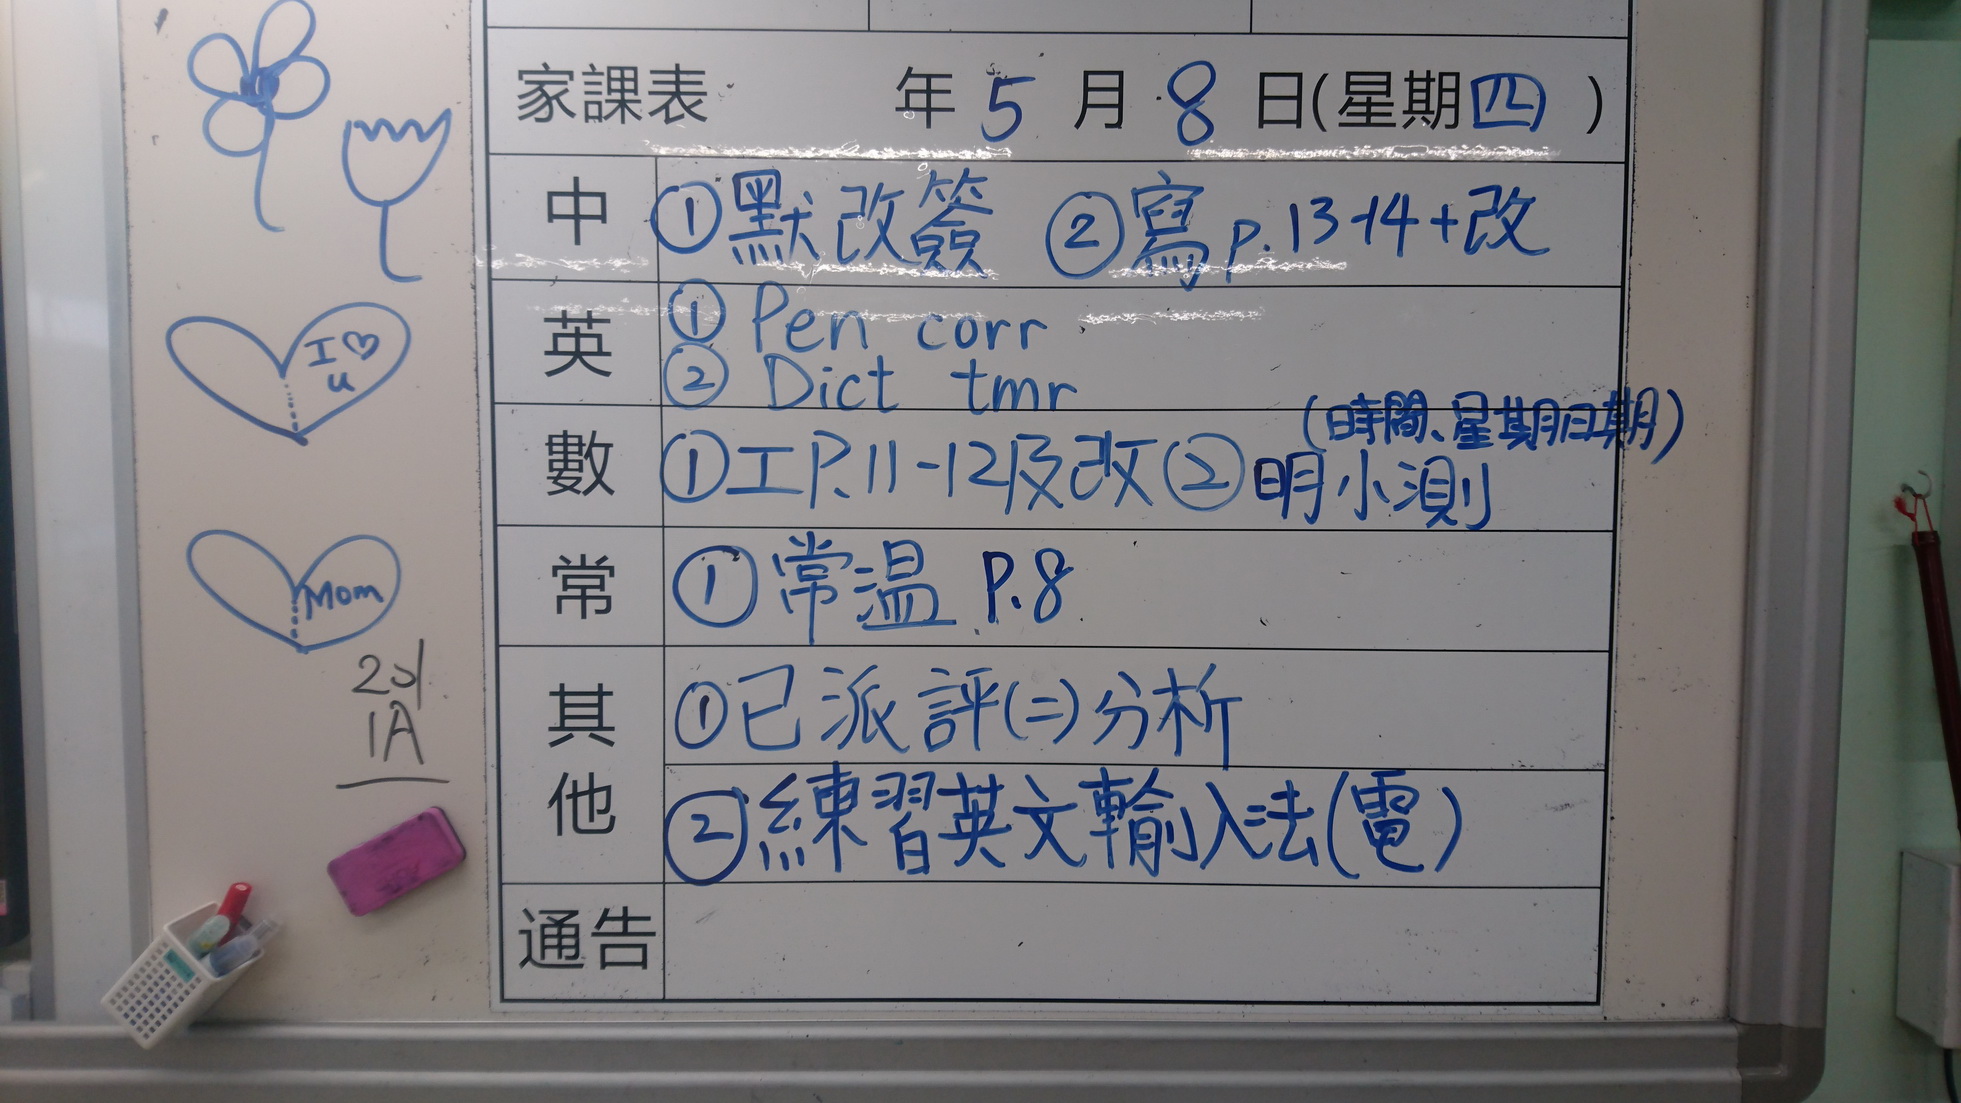 家課表 年5月8日(星期四)
中 ①默改簽 ②寫p.13-14+改
英 ① Pen corr
② Dict tmr
(時間、星期日期)
數 ①工P.11-12及改②明小測
常 ①常温 P.8
其他 ①已派評(二)分析
②練習英文輸入法(電)
通告
I ♡
u
Mom
1A